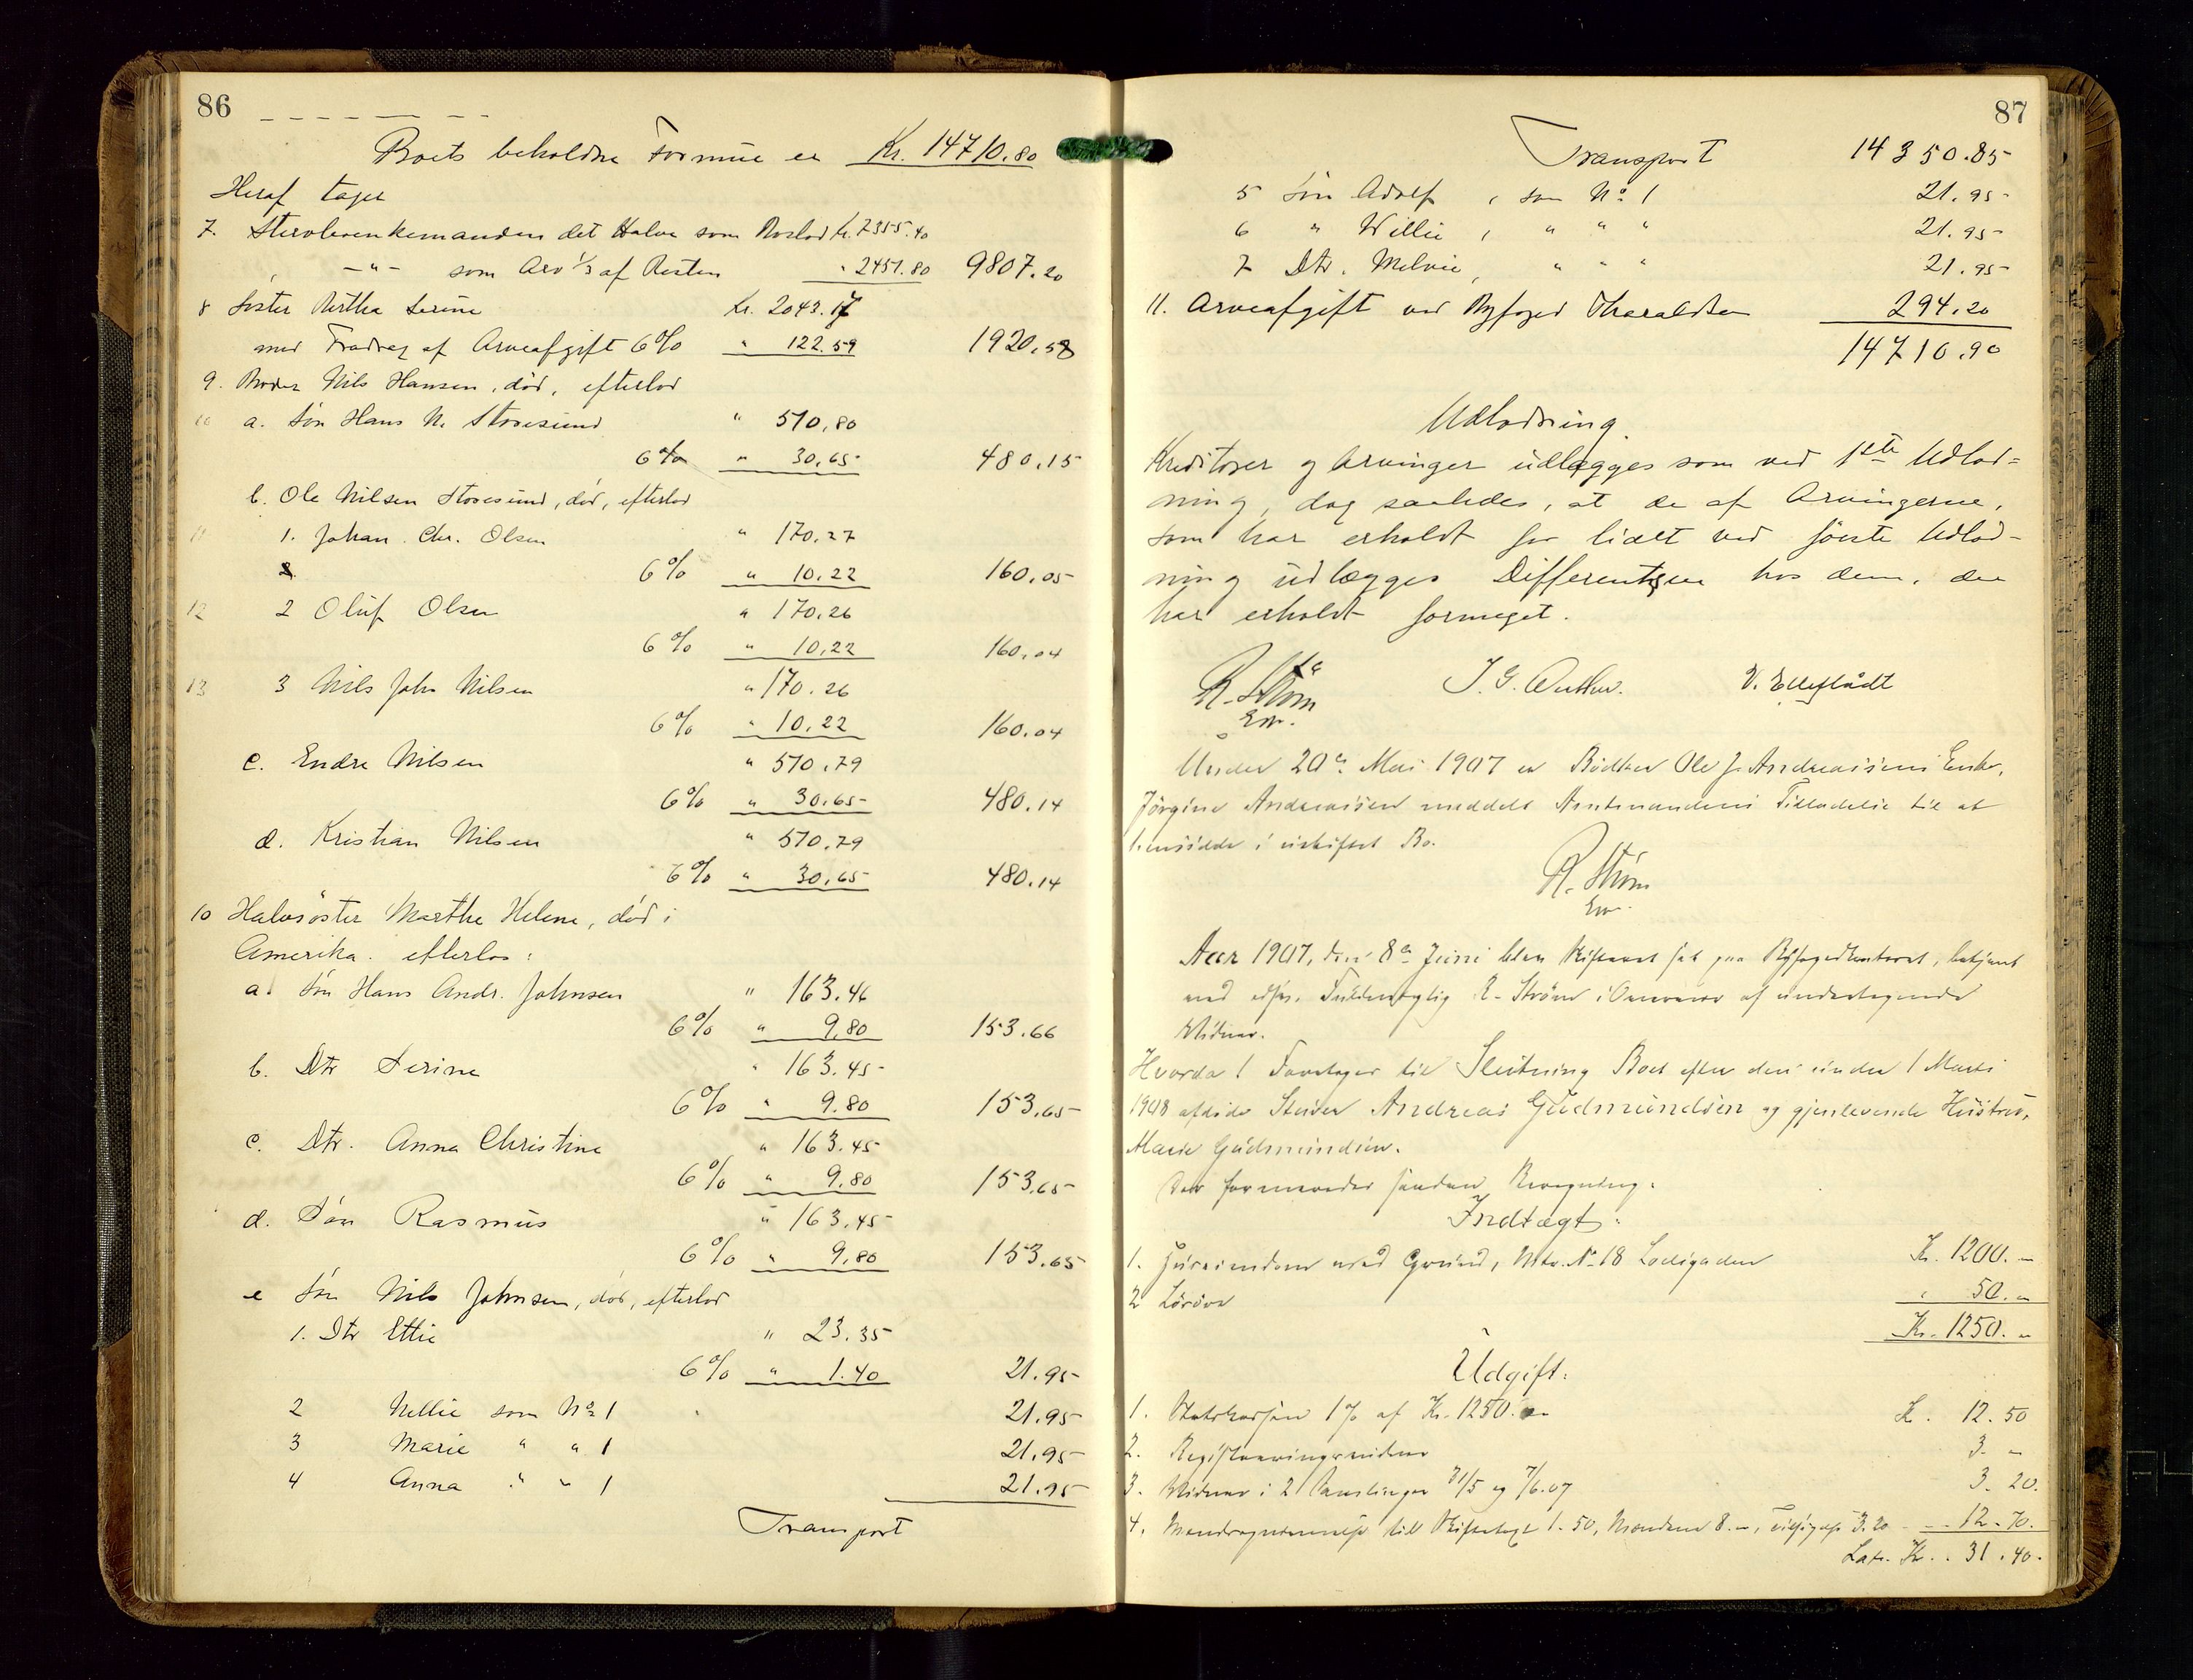 86
Boets beholdne Formue er Kr. 14710.80
Heraf tager
7. Stervboenkemanden det Halve som Boslod Kr. 7355.40
-"- som Arv 1/3 af Resten " 2451.80 9807.20
8 Søster Bertha Serine Kr. 2043.17
med Fradrag af Arveafgift 6% " 122.59 1920.58
9. Broder Nils Hansen, død, efterlod
10 a. Søn Hans N. Storesund " 510.80
6% " 30.65 480.15
b. Ole Nilsen Storesund, død, efterlod
11 1. Johan Chr. Olsen " 170.27
6% " 10.22 160.05
12 2 Oluf Olsen " 170.26
6% " 10.22 160.04
13 3 Nils John Nilsen " 170.26
6% " 10.22 160.04
c. Endre Nilsen " 510.79
6% " 30.65 480.14
d. Kristian Nilsen " 510.79
6% " 30.65 480.14
10 Halvsøster Marthe Helene, død i
Amerika. efterlod:
a. Søn Hans Andr. Johnsen " 163.46
6% " 9.80 153.66
b. Dtr Serine " 163.45
6% " 9.80 153.65
c. Dtr. Anna Christine " 163.45
6% " 9.80 153.65
d. Søn Rasmus " 163.45
6% " 9.80 153.65
e Søn Nils Johnsen, død, efterlod
1. Dtr Ettie " 23.35
6% " 1.40 21.95
2 Nellie som No 1 21.95
3 Marie " " 1 21.95
4 Anna " " 1 21.95
Transport
87
Transport 14350.85
5 Søn Adolf, som No 1 21.95
6 " Willie, " " " 21.95
7 Dtr. Melvie, " " " 21.95
11. Arveafgift ved Byfoged Tharaldsen 294.20
14710.90
Udlodning.
Kreditorer og Arvinger udlægges som ved 1ste Udlod=
ning, dog saaledes, at de af Arvingerne,
som har erholdt for lidet ved første Udlod-
ning udlægges Differentsen hos dem, der
har erholdt formeget.
R. Strøm
Em.
V. Ellefladt
Under 20de Mai 1907 er Bødker Ole J. Andreassens Enke,
Jørgine Andreassen meddelt Amtmandens Tilladelse til at
hensidde i uskiftet Bo.
R. Strøm
Em.
Aar 1907, den 8de Juni blev Skifteret sat paa Byfogedkontoret, betjent
ved edsv. Fuldmægtig R. Strøm i Overvær af undertegnede
Vidner.
Hvorda! Foretages til Slutning Boet efter den under 1 Marts
1908 afdøde Stuver Andreas Gudmundsen og gjenlevende Hustru,
Marie Gudmundsen.
Der formeredes saadan Beregning:
Indtægt:
1. Huseiendom med Grund, Mtr. No 18 Lodsgaden Kr. 1200.-
2 Løsøre " 50.-
Kr. 1250.-
Udgift:
1. Statskassen 1% af Kr. 1250.- Kr. 12.50
2. Registreringsvidner 3.-
3. Vidner i 2 Samlinger 31/5 og 7/6.07 3.20.
4. till Skiftetagst 1.50, Mændene 8.-, 3.20 - 12.70.
Lat. Kr. 31.40.